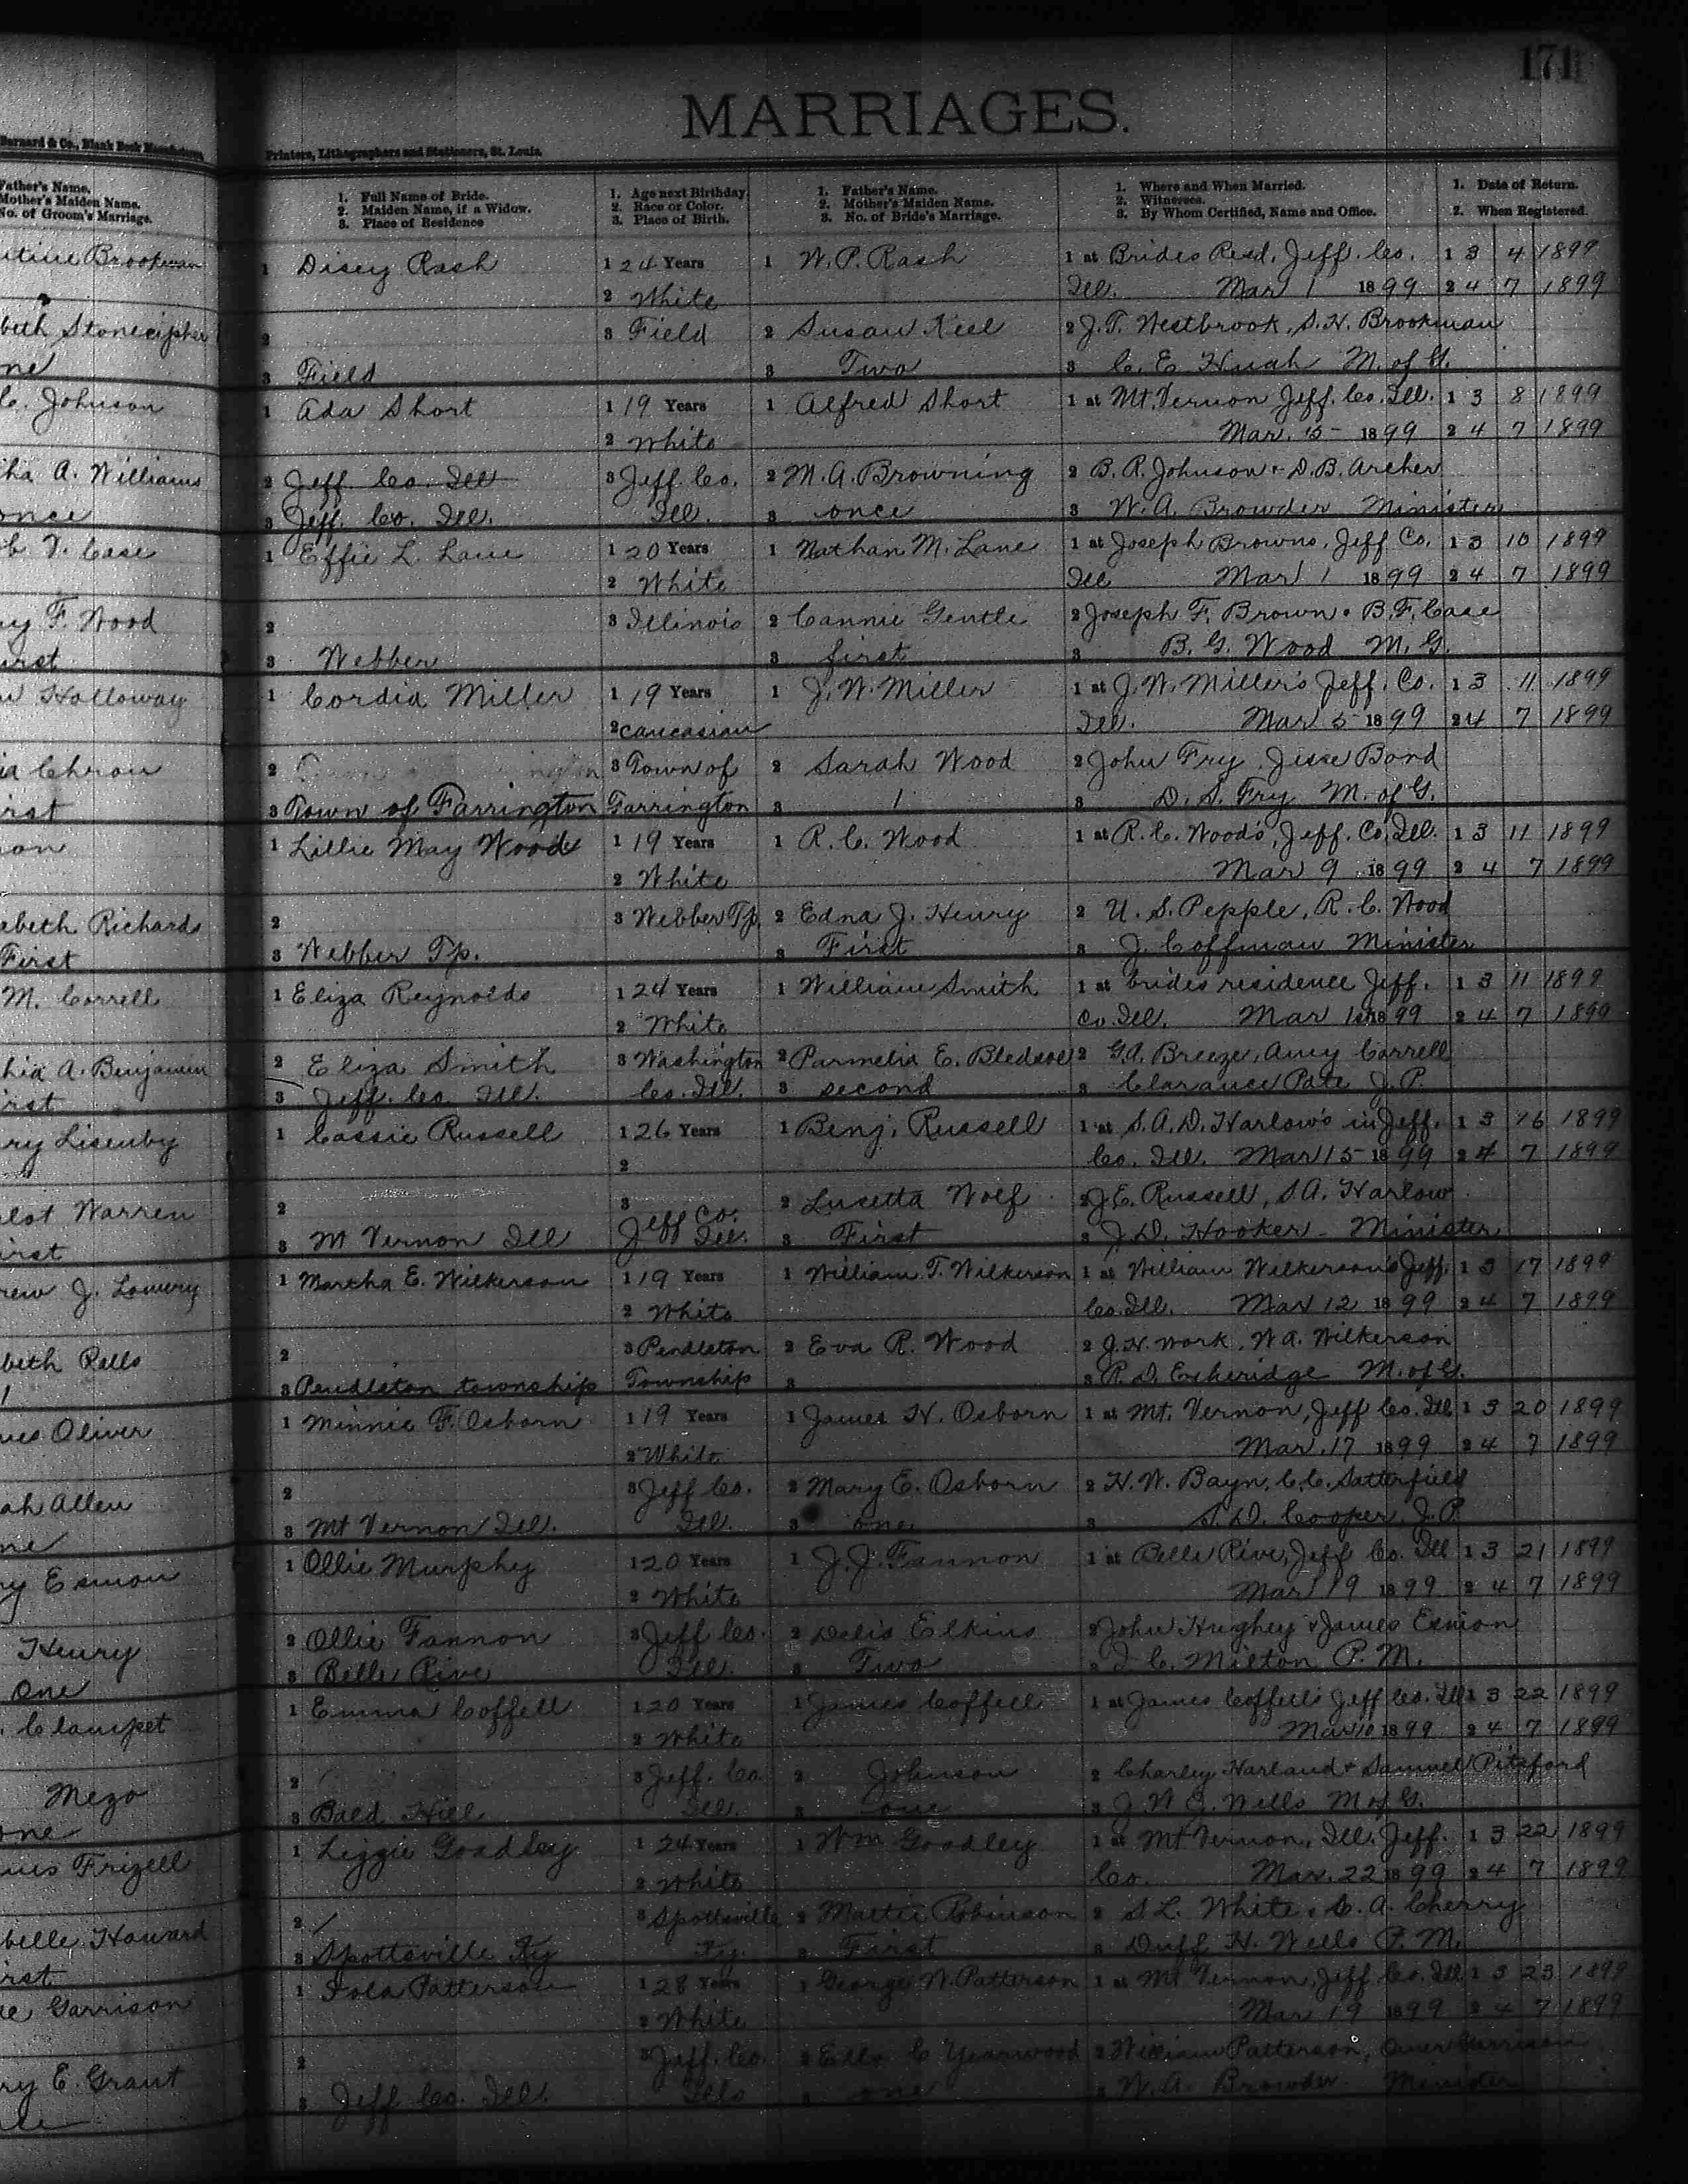 171
MARRIAGES.
Barnard & Co., Blank Book Manufacturers,
Printers, Lithographers and Stationers, St. Louis.
Father's Name.
Mother's Maiden Name.
No. of Groom's Marriage.
1. Full Name of Bride.
2. Maiden Name, if a Widow.
3. Place of Residence
1. Age next Birthday
2. Race or Color.
3. Place of Birth.
1. Father's Name.
2. Mother's Maiden Name.
3. No. of Bride's Marriage.
1. Where and When Married.
2. Witnesses.
3. By Whom Certified, Name and Office.
1. Date of Return.
2. When Registered.
Brookman
1 Disey Rash 1 24 Years 1 W. P. Rash 1 at Brides Resd, Jeff. Co. 1 3 4 1899
2 White Ill. Mar 1 1899 2 4 7 1899
beth Stonecipher 2 3 Field 2 Susan Keel 2 J. T. Westbrook, S. H. Brookman
3 Field 3 Two 3 C. E. M. of G.
C. Johnson 1 Ada Short 1 19 Years 1 Alfred Short 1 at Mt. Vernon Jeff. Co. Ill. 1 3 8 1899
2 White Mar. 5 1899 2 4 7 1899
tha A. Williams 2 Jeff. Co. Ill 3 Jeff. Co. 2 M. A. Browning 2 B. R. Johnson & D. B. Archer
once 3 Jeff. Co. Ill. Ill. 3 once 3 W. A. Browder Minister
Case 1 Effie L. Lane 1 20 Years 1 Nathan M. Lane 1 at Joseph Browns, Jeff Co. 1 3 10 1899
2 White Ill Mar 1 1899 2 4 7 1899
F. Wood 2 3 Illinois 2 Cannie Gentle 2 Joseph F. Brown & B. F. Case
irst 3 Webber 3 first 3 B. G. Wood M. G.
Holloway 1 Cordia Miller 1 19 Years 1 J. W. Miller 1 at J. W. Miller's Jeff. Co. 1 3 11 1899
2 caucasian Ill. Mar 5 1899 2 4 7 1899
ia Chron 2 3 Town of 2 Sarah Wood 2 John Fry, Jesse Bond
irst 3 Town of Farrington Farrington 3 1 3 D. S. Fry M. of G.
1 Lillie May Wood 1 19 Years 1 R. C. Wood 1 at R. C. Wood's, Jeff. Co. Ill. 1 3 11 1899
2 White Mar 9 1899 2 4 7 1899
abeth Richards 2 3 Webber Tp. 2 Edna J. Henry 2 U. S. Pepple, R. C. Wood
First 3 Webber Tp. 3 First 3 J. Coffman Minister
M. Correll 1 Eliza Reynolds 1 24 Years 1 William Smith 1 at brides residence Jeff. 1 3 11 1899
2 White Co. Ill. Mar 1899 2 4 7 1899
hia A. Benjamin 2 Eliza Smith 3 Washington 2 Parmelia E. Bledsoe 2 G. A. Breeze, Amy Correll
irst 3 Jeff. Co. Ill. Co. Ill. 3 second 3 Clarance Pate J. P.
ry Lisenby 1 Cassie Russell 1 26 Years 1 Benj. Russell 1 at S. A. D. Harlow's in Jeff. 1 3 16 1899
2 Co. Ill. Mar 15 1899 2 4 7 1899
lot Warren 2 3 2 Lusetta Wolf 2 J. E. Russell, S. A. Harlow
irst 3 Mt Vernon Ill Jeff Co. Ill. 3 First 3 J. D. Hooker - Minister
rew J. Lowery 1 Martha E. Wilkerson 1 19 Years 1 William T. Wilkerson 1 at William Wilkerson's Jeff. 1 3 17 1899
2 White Co. Ill. Mar 12 1899 2 4 7 1899
beth Rells 2 3 Pendleton 2 Eva R. Wood 2 J. H. Work, W. A. Wilkerson
1 3 Pendleton township Township 3 3 R. D. Etheridge M. of G.
mes Oliver 1 Minnie F. Osborn 1 19 Years 1 James H. Osborn 1 at Mt. Vernon, Jeff Co. Ill 1 3 20 1899
2 White Mar. 17 1899 2 4 7 1899
ah Allen 2 3 Jeff Co. 2 Mary E. Osborn 2 H. W. Bayn, C. C. Satterfield
ne 3 Mt Vernon Ill. Ill. 3 one 3 S. D. Cooper, J. P.
ry Esmon 1 Ollie Murphy 1 20 Years 1 J. J. Fannon 1 at Belle Rive, Jeff Co. Ill 1 3 21 1899
2 White Mar 19 1899 2 4 7 1899
Henry 2 Ollie Fannon 3 Jeff Co. 2 Elkins 2 John Hughey & James Esmon
One 3 Belle Rive Ill. 3 Two 3 C. Milton P. M.
Clampet 1 Emma Coffell 1 20 Years 1 James Coffell 1 at James Coffell's Jeff Co. Ill 1 3 22 1899
2 White Mar 10 1899 2 4 7 1899
Mezo 2 3 Jeff. Co. 2 Johnson 2 Charley Harland & Samuel Pitsford
one 3 Bald Hill Ill. 3 one 3 J. W. J. Wells M of G.
Frizell 1 Lizzie Goodley 1 24 Years 1 Wm Goodley 1 at Mt Vernon, Ill. Jeff. 1 3 22 1899
2 White Co. Mar. 22 1899 2 4 7 1899
belle Howard 2 3 Spottsville 2 Mattie Robinson 2 S. L. White & C. A. Cherry
irst 3 Spottsville Ky Ky. 3 First 3 Duff H. Wells P. M.
Garrison 1 Iola Patterson 1 28 Years 1 George W. Patterson 1 at Mt Vernon, Jeff Co. Ill 1 3 23 1899
2 White Mar 19 1899 2 4 7 1899
ry E. Grant 2 3 Jeff. Co. 2 Ella C Yearwood 2 William Patterson, Omer Garrison
3 Jeff Co. Ill. Ills 3 one 3 W. A. Browder Minister